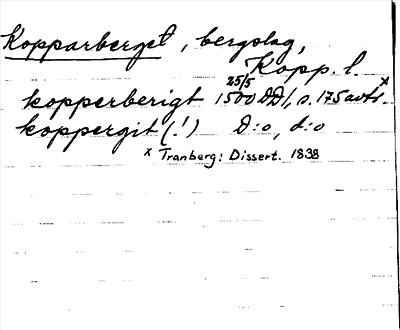 Kopparberget, bergslag,
Kopp. l.
kopperberigt 1500 25/5 DD1, s. 175 avtr. x
koppergit (!) D:o, d:o
x Tranberg: Dissert. 1838